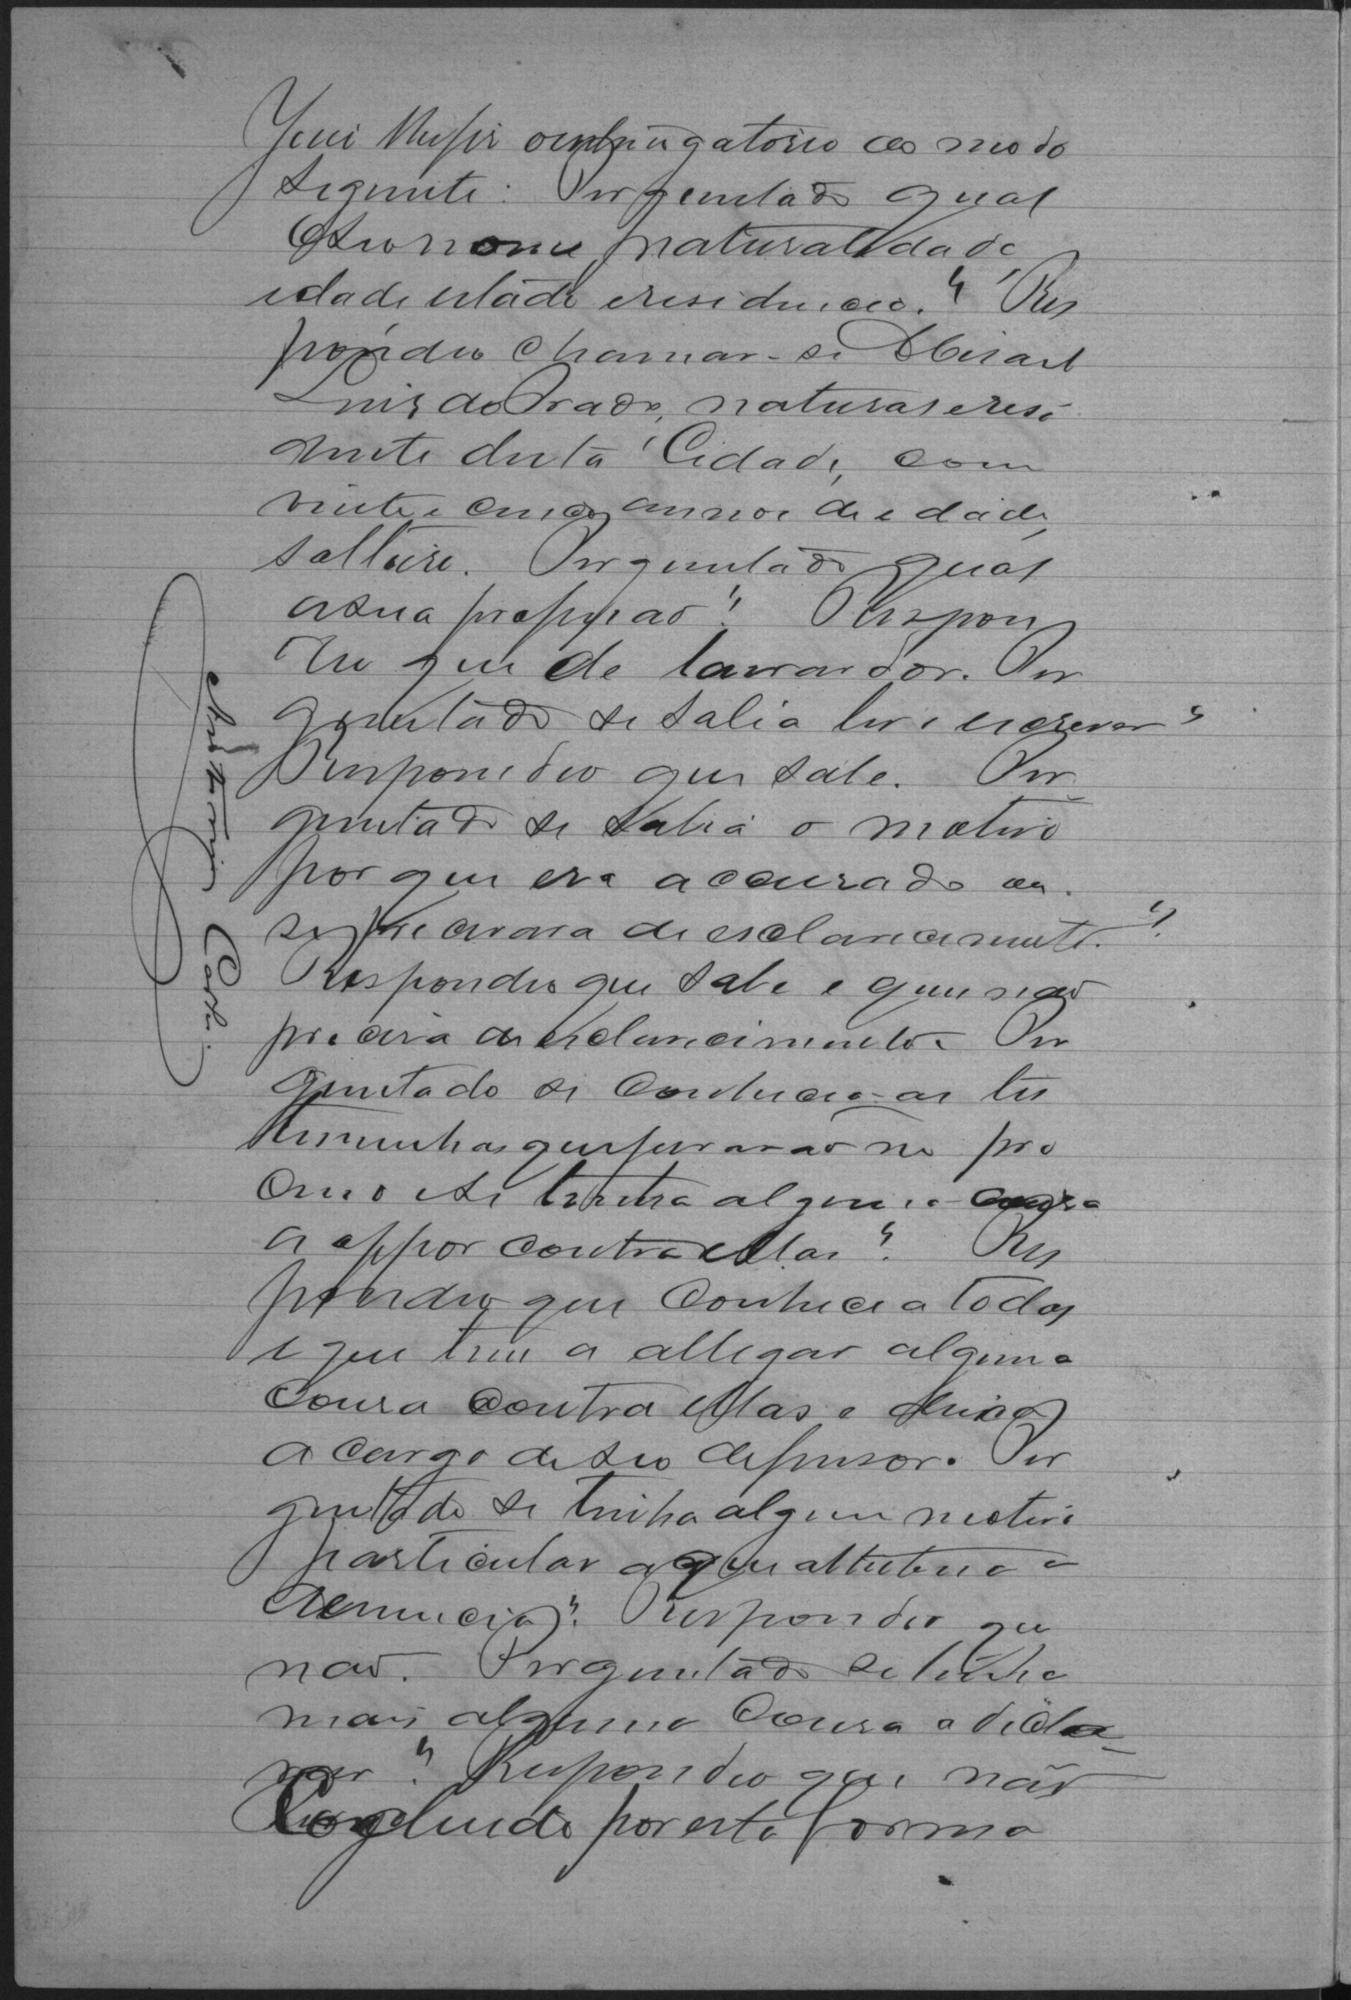 o interrogatorio do modo
seguinte: Perguntado qual
o seu nome, naturalidade,
idade estado e residencia? Res
pondeu chamar-se
Luis do Prado, natural e resi
dente desta Cidade, com
vinte e cinco annos de edade,
solteiro. Perguntado qual
a sua profissão? Respon
deu que de lavrador. Per
guntado se sabia ler e escrever?
Respondeu que sabe. Per
guntado se sabia o motivo
por que era accusado ou
se precisava de esclarecimento?
Respondeu que sabe e que não
precisa de esclarecimento. Per
guntado se conhecia as tes
temunhas que juraram no pro
cesso e se tinha alguma cousa
a oppor contra ellas? Res
pondeu que conhece a todas
e que tem a allegar alguma
cousa contra ellas e deixa
a cargo de seu defensor. Per
guntado se tinha algum motivo
particular a que attribua a
denuncia? Respondeu que
não. Perguntado se tinha
mais alguma cousa a decla
rar? Respondeu que não
Concluido por esta forma